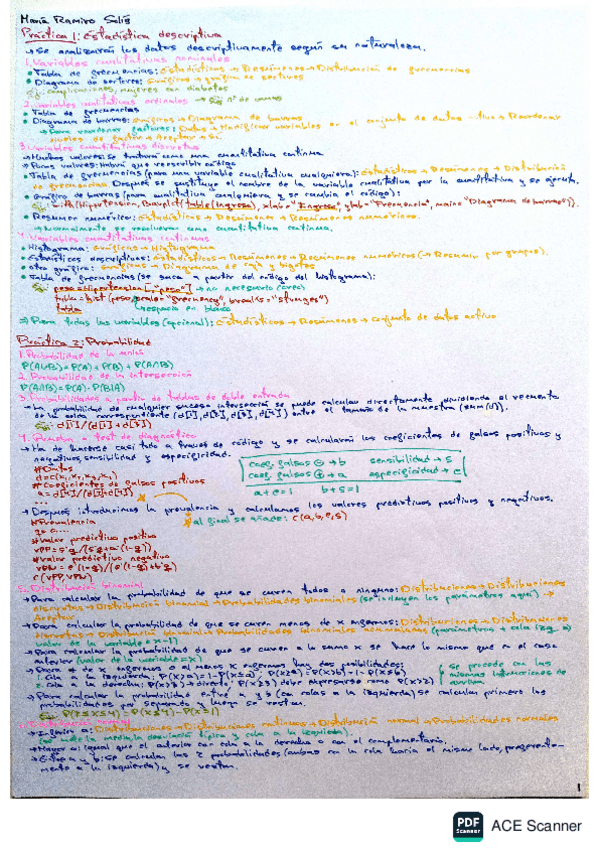 María Ramiro Solís
Práctica 1: Estadística descriptiva
→ Se analizarán los datos descriptivamente según su naturaleza.
1. Variables cualitativas nominales
• Tabla de frecuencias: Estadísticos → Resúmenes → Distribución de frecuencias
• Diagrama de sectores: Gráficos → gráfica de sectores
Ej: complicaciones, mujeres con diabetes
2. Variables cualitativas ordinales → Ej: nº de
• Tabla de frecuencias
• Diagrama de barras: Gráficos → Diagrama de barras
→ Para reordenar factores: Datos → Modificar variables en el conjunto de datos activo → Reordenar
niveles de factor → Aceptar → Sí
3. Variables cuantitativas discretas
→ Muchos valores: se tratará como una cuantitativa continua
→ Pocos valores: habrá que reescribir código
• Tabla de frecuencias (para una variable cualitativa cualquiera): Estadísticos → Resúmenes → Distribución
de frecuencias. Después se sustituye el nombre de la variable cualitativa por la cuantitativa y se ejecuta.
• Gráfico de barras (para cualitativa cualquiera y se cambia el código):
Ej: with(Hipertension, Barplot(table(Ingreso), xlab= "Ingreso", ylab= "Frecuencia", main= "Diagrama de barras")).
• Resumen numérico: Estadísticos → Resúmenes → Resúmenes numéricos.
→ Normalmente se resolverán como cuantitativa continua.
4. Variables cuantitativas continuas
• Histograma: Gráficos → Histograma
• Estadísticos descriptivos: Estadísticos → Resúmenes → Resúmenes numéricos (→ Resumir por grupos).
• Otro gráfico: Gráficos → Diagrama de caja y bigotes
• Tabla de frecuencias (se saca a partir del código del histograma):
Ej: peso=Hipertension[,"peso"] → no necesario (creo)
tabla=hist(peso, scale="frecuency", breaks="sturges")
tabla → espacio en blanco
⇒ Para todas las variables (opcional): Estadísticos → Resúmenes → Conjunto de datos activo
Práctica 2: Probabilidad
1. Probabilidad de la unión
P(A∪B)=P(A)+P(B)+P(A∩B)
2. Probabilidad de la intersección
P(A∩B)=P(A)·P(B|A)
3. Probabilidades a partir de tablas de doble entrada
→ La probabilidad de cualquier suceso intersección se puede calcular directamente, dividiendo el recuento
de la celda correspondiente (d[1], d[2], d[3], d[4]) entre el tamaño de la muestra (sum(d)).
Ej: d[1]/(d[1]+d[3])
4. Prueba - test de diagnóstico
→ Ha de hacerse casi todo a través de código y se calcularán los coeficientes de falsos positivos y
negativos, sensibilidad y especificidad.
#Datos
d=c(x1, x2, x3, x4)
#Coeficientes de falsos positivos
a=d[3]/(d[3]+d[4])
...
coef. falsos ⊖ → b sensibilidad → s
coef. falsos ⊕ → a especificidad → e
a+e=1 b+s=1
→ Después introducimos la prevalencia y calculamos los valores predictivos positivos y negativos.
#Prevalencia
q=0.…
al final se añade: c(a,b,e,s)
#Valor predictivo positivo
VPP=s*q/(s*q+a*(1-q))
#Valor predictivo negativo
VPN=e*(1-q)/(e*(1-q)+b*q)
c(VPP,VPN)
5. Distribución binomial
→ Para calcular la probabilidad de que se curen todos o ninguno: Distribuciones → Distribuciones
discretas → Distribución binomial → Probabilidades binomiales (se incluyen los parámetros aquí) →
Aceptar
→ Para calcular la probabilidad de que se curen menos de x enfermos: Distribuciones → Distribuciones
discretas → Distribución binomial → Probabilidades binomiales acumuladas (parámetros + cola izq.)
valor de la variable x-1)
→ Para calcular la probabilidad de que se curen a lo sumo x se hace lo mismo que en el caso
anterior (valor de la variable=x)
→ Para + de x enfermos o al menos x enfermos hay dos posibilidades:
1. Cola a la izquierda:
2. Cola a la derecha:
se procede con las
mismas intenciones de
arriba.
→ Para calcular la probabilidad entre x y y (con colas a la izquierda) se calculan primero las
probabilidades por separado y luego se restan.
Ej: P(2≤x≤4)=P(x≤4)-P(x≤1)
6. Distribución normal
→ Inferior a: Distribuciones → Distribuciones continuas → Distribución normal → Probabilidades normales
(se mete la media, la desviación típica y cola a la izquierda).
→ Mayor a: igual que el anterior con cola a la derecha o con el complementario.
→ Entre a y b: se calculan las 2 probabilidades (ambas con la cola hacia el mismo lado, preferente-
mente a la izquierda) y se restan.
1
PDF
Scanner
ACE Scanner